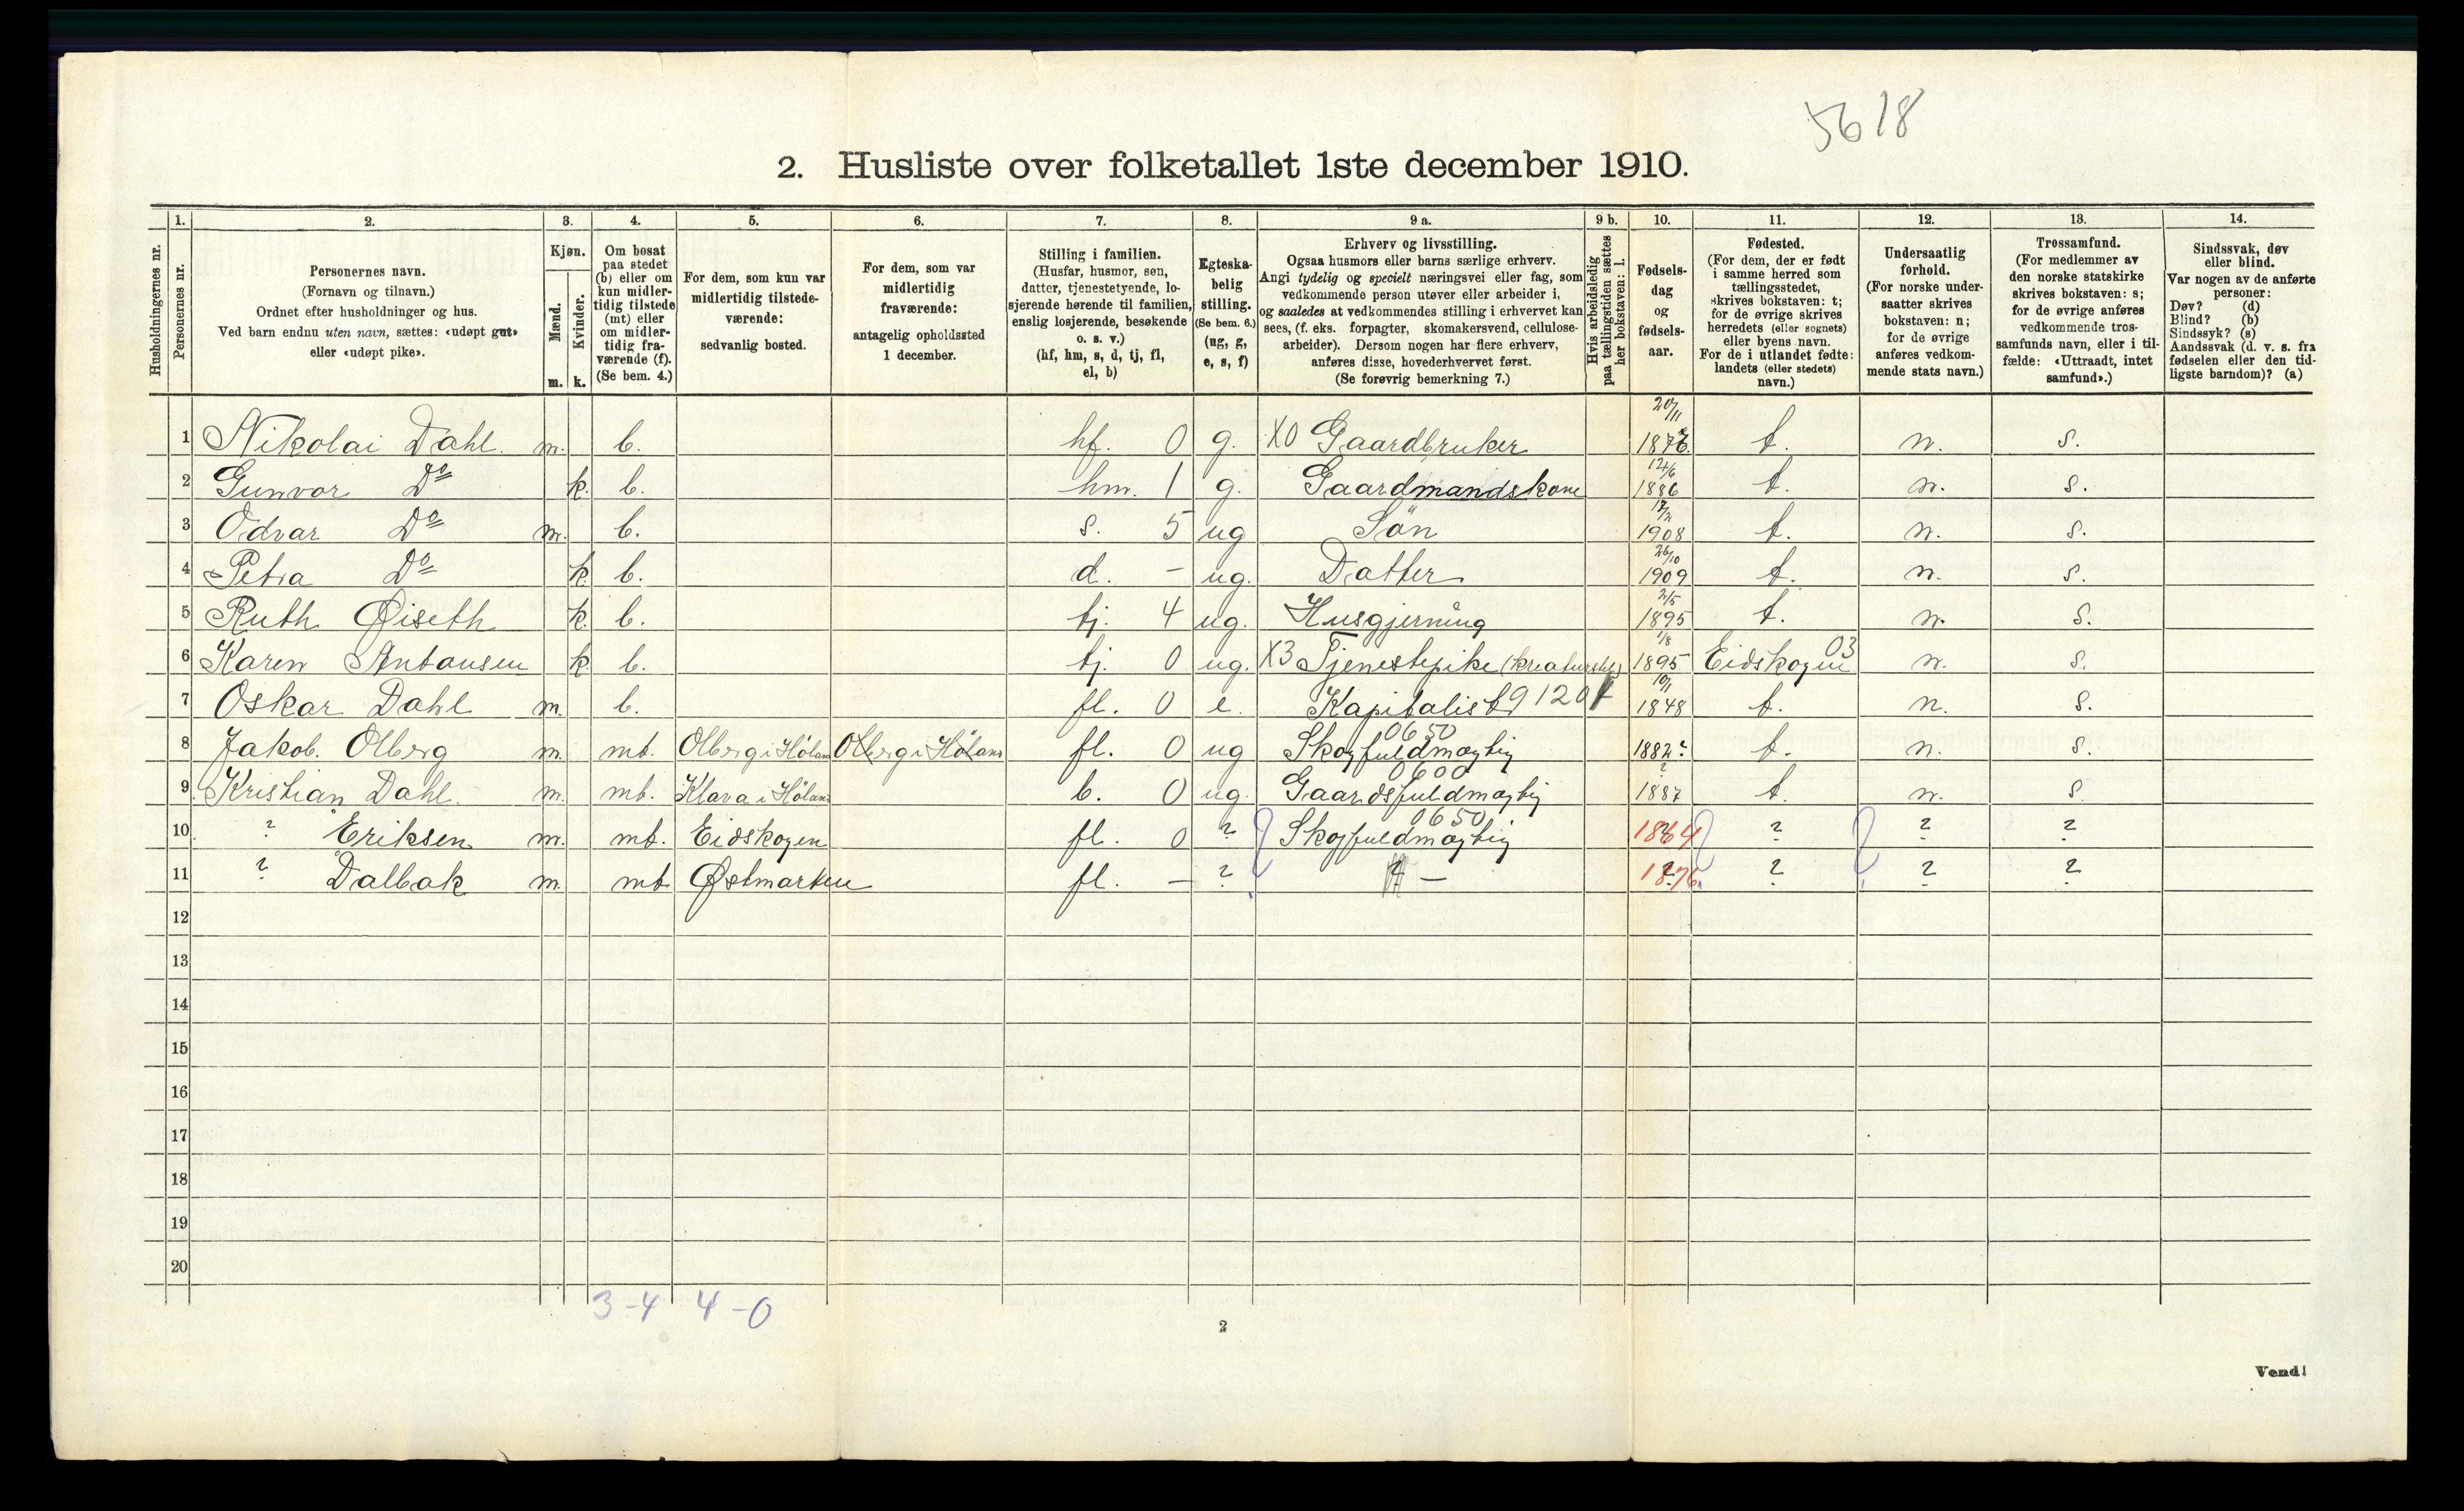 5618
2. Husliste over folketallet 1ste december 1910.
Husholdningernes nr.
1. Personernes nr.
2. Personernes navn.
(Fornavn og tilnavn.)
Ordnet efter husholdninger og hus.
Ved barn endnu uten navn, sættes: «udøpt gut»
eller «udøpt pike».
3. Kjøn.
Mænd. m.
Kvinder. k.
4. Om bosat
paa stedet
(b) eller om
kun midler-
tidig tilstede
(mt) eller
om midler-
tidig fra-
værende (f).
(Se bem. 4.)
5. For dem, som kun var
midlertidig tilstede-
værende:
sedvanlig bosted.
6. For dem, som var
midlertidig
fraværende:
antagelig opholdssted
1 december.
7. Stilling i familien.
(Husfar, husmor, søn,
datter, tjenestetyende, lo-
sjerende hørende til familien,
enslig losjerende, besøkende
o. s. v.)
(hf, hm, s, d, tj, fl,
el, b)
8. Egteska-
belig
stilling.
(Se bem. 6.)
(ug, g,
e, s, f)
9 a. Erhverv og livsstilling.
Ogsaa husmors eller barns særlige erhverv.
Angi tydelig og specielt næringsvei eller fag, som
vedkommende person utøver eller arbeider i,
og saaledes at vedkommendes stilling i erhvervet kan
sees, (f. eks. forpagter, skomakersvend, cellulose-
arbeider). Dersom nogen har flere erhverv,
anføres disse, hovederhvervet først.
(Se forøvrig bemerkning 7.)
9 b. Hvis arbeidsledig
paa tællingstiden sættes
her bokstaven: l.
10. Fødsels-
dag
og
fødsels-
aar.
11. Fødested.
(For dem, der er født
i samme herred som
tællingsstedet,
skrives bokstaven: t;
for de øvrige skrives
herredets (eller sognets)
eller byens navn.
For de i utlandet fødte:
landets (eller stedets)
navn.)
12. Undersaatlig
forhold.
(For norske under-
saatter skrives
bokstaven: n;
for de øvrige
anføres vedkom-
mende stats navn.)
13. Trossamfund.
(For medlemmer av
den norske statskirke
skrives bokstaven: s;
for de øvrige anføres
vedkommende tros-
samfunds navn, eller i til-
fælde: «Uttraadt, intet
samfund».)
14. Sindssvak, døv
eller blind.
Var nogen av de anførte
personer:
Døv? (d)
Blind? (b)
Sindssyk? (s)
Aandssvak (d. v. s. fra
fødselen eller den tid-
ligste barndom)? (a)
1 Nikolai Dahl. m. b. hf. 0 g. X0 Gaardbruker 20/11 187 t. n. s.
2 Gunvor Do k. b. hm. 1 g. Gaardmandskone 12/6 1886 t. n. s.
3 Odvar Do m. b. s. 5 ug Sön 1908 t. n. s.
4 Petra Do k. b. d. - ug. Datter 26/10 1909 t. n. s.
5 Ruth Øiseth k. b. tj. 4 ug. Husgjerning 2/5 1895 t. n. s.
6 Karen Antonsen k. b. tj. 0 ug. X3 Tjenestepike (kreaturstel) 1/8 1895 Eidskogen 03 n. s.
7 Oskar Dahl m. b. fl. 0 e. Kapitalist 9120 10/1 1848 t. n. s.
8 Jakob. Olberg m. mt. Olberg i Höland Olberg i Höland fl. 0 ug Skogfuldmægtig 0650 1882? t. n. s.
9 Kristian Dahl. m. mt. Klava i Höland b. 0 ug. Gaardsfuldmægtig 0600 ? 1887 t. n. s.
10 ? Eriksen m. mt. Eidskogen fl. 0 ? Skogfuldmægtig 0650 1864 ? ? ?
11 ? Dalbak m. mt Østmarken fl. - ? - 1876. ? ? ?
12
13
14
15
16
17
18
19
20
3-4 4-0
2
Vend!